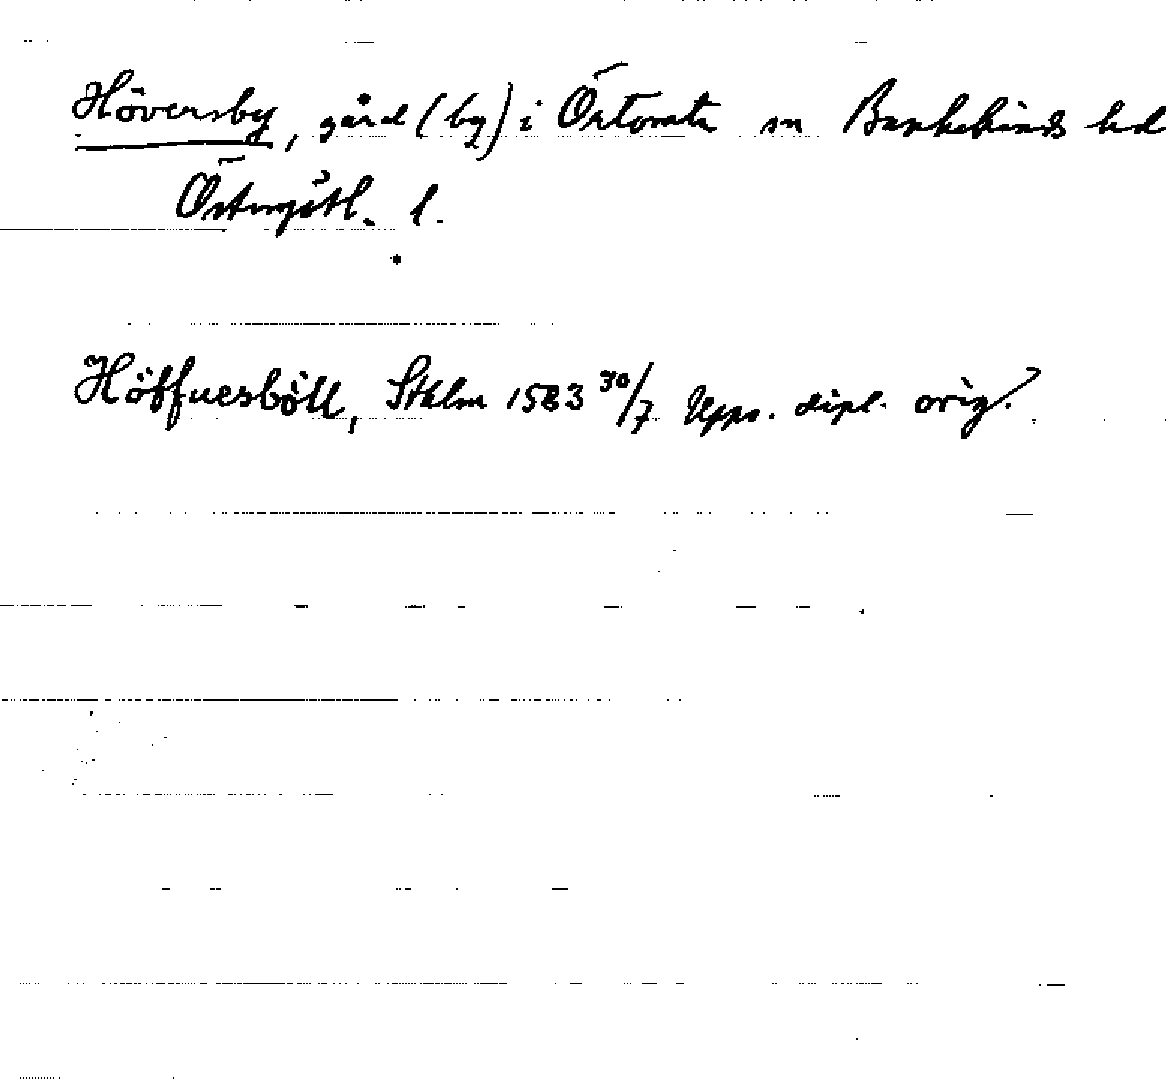 Höversby, gård (by) i Örtomta sn Bankekinds hd
Östergötl. l.
Höffuesböll, Sthlm 1583 30/7 Upps. dipl. orig.